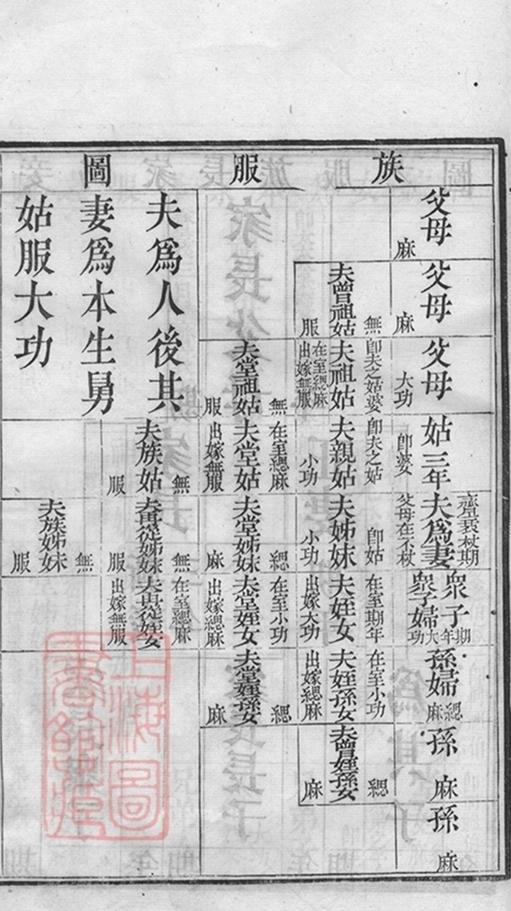 族 服 圖
父母 麻
父母 麻
父母 大功
姑 三年 即婆
夫為妻 齊衰杖期 父母在不杖
眾子 期年
眾子婦 大功
孫婦 緦麻
孫 麻
孫 麻
夫曾祖姑 無服
夫祖姑 即夫之姑婆 在室緦麻 出嫁無服
夫親姑 即夫之姑 小功
夫姊妹 即姑 小功
夫姪女 在室期年 出嫁大功
夫姪孫女 在室小功 出嫁緦麻
夫曾姪孫女 緦麻
夫堂祖姑 無服
夫堂姑 在室緦麻 出嫁無服
夫堂姊妹 緦麻
夫堂姪女 在室小功 出嫁緦麻
夫堂姪孫女 緦麻
夫族姑 無服
夫再從姊妹 無服
夫再從姪女 在室緦麻 出嫁無服
夫族姊妹 無服
夫為人後其
妻為本生舅
姑服大功
上海圖
書館藏